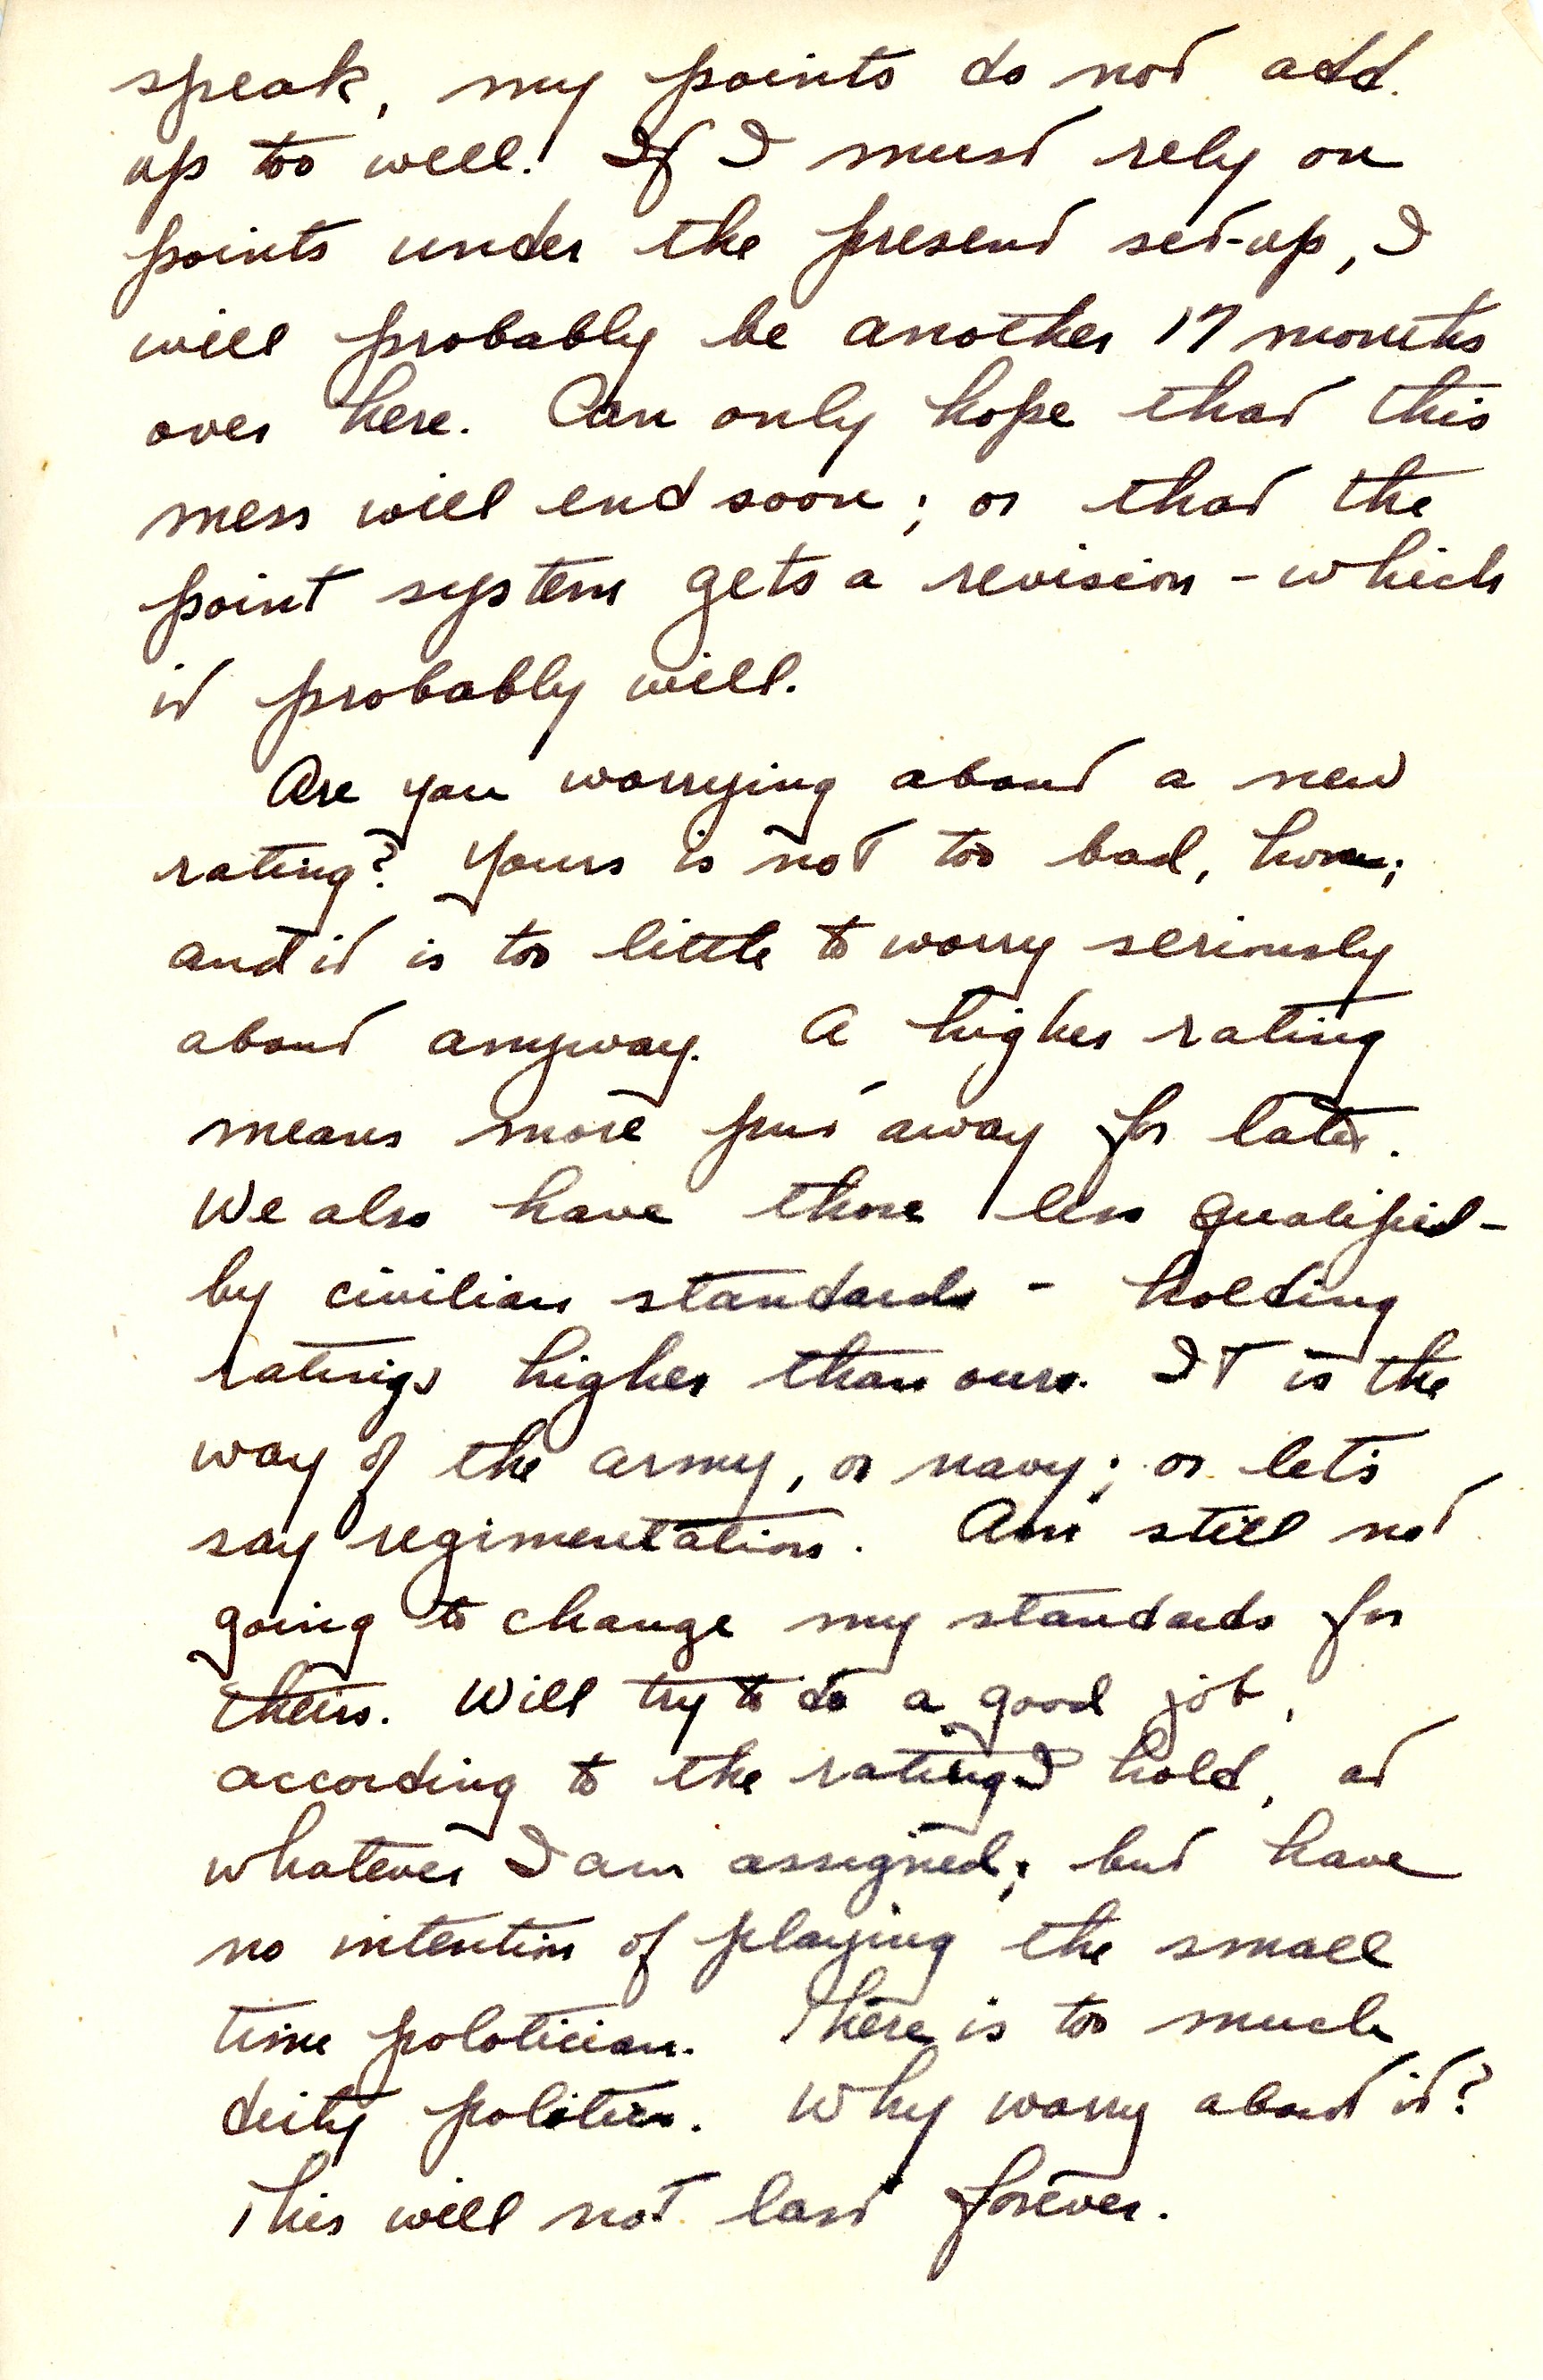 speak, my points do not add
up too well! If I must rely on
points under the present set-up, I
will probably be another 17 months
over here. Can only hope that this
mess will end soon; or that the
point system gets a revision - which
it probably will.
Are you worrying about a new
rating? Yours is not too bad, hon;
and it is too little to worry seriously
about anyway. A higher rating
means more put away for later.
We also have those less qualified -
by civilian standards - holding
ratings higher than ours. It is the
way of the army, or navy; or let's
say regimentation. Am still not
going to change my standards for
theirs. Will try to do a good job,
according to the rating I hold, at
whatever I am assigned; but have
no intention of playing the small
time polotician. There is too much
dirty politics. Why worry about it?
This will not last forever.